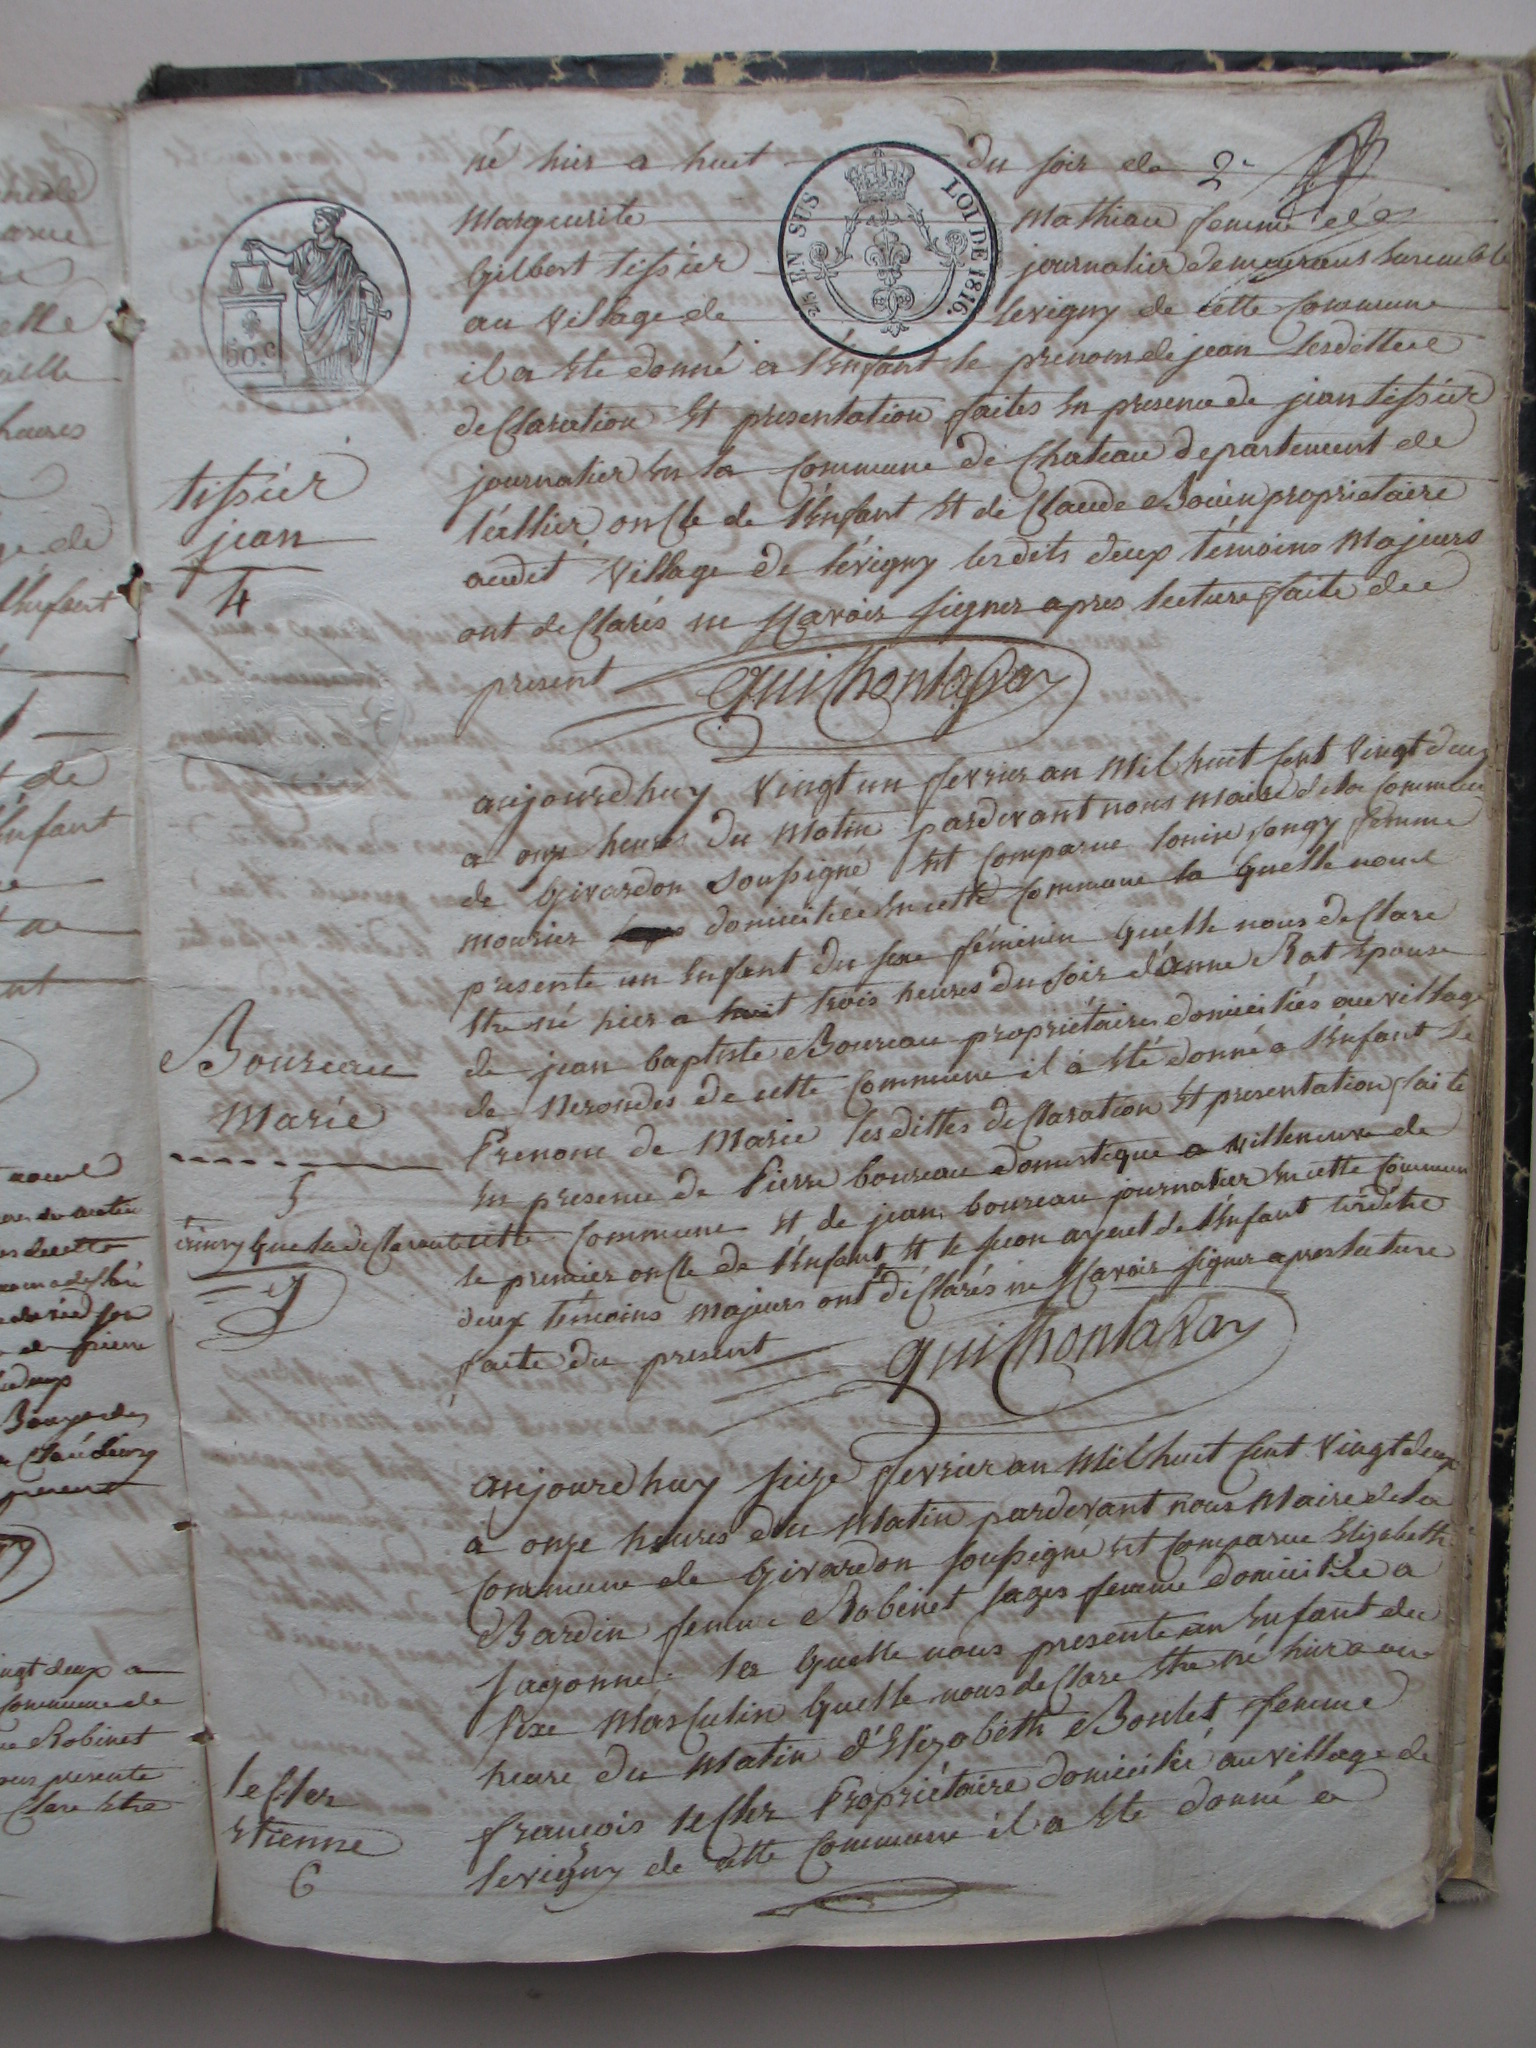 né hier a huit du soir de 2e
Marguerite Mathiau femme de
Gilbert tissier journalier demeurant Ensemble
au village de levigny de cette Commune
il a Eté donné a l'Enfant le prenom de jean lesdittes
declaration Et presentation faites En presence de jean tissier
journalier En la Commune de Chateau departement de
l'allier, oncle de l'Enfant Et de Claude Bouin proprietaire
audit village de lévigny lesdits deux témoins Majeurs
ont declarés ne sçavoir signer apres lecture faite du
present
Guilhontaxay
25 EN SUS
LOI DE 1816.
50. C
tissier
jean
4
aujourdhuy vingt un fevrier an Mil huit sent vingt deux
a onze heures du Matin pardevant nous maire de la Commune
de Givardon soussigné Est Comparue louise Sangy femme
mourier domiciliée En cette Commune la quelle nous
presente un Enfant du sexe féminin quelle nous declare
Etre né hier a huit trois heures du soir d'anne Rat Epouse
de jean baptiste Boureau propriétaires domiciliées au village
de Nerondes de cette Commune il a Eté donné a l'Enfant le
Prenom de Marie lesdittes declaration Et presentation faite
En presence de Pierre boureau domestique a villeneuve de
cette Commune Et de jean boureau journalier En cette Commune
le premier oncle de l'Enfant Et le secon ayeul de l'Enfant lesdits
deux témoins majeurs ont déclarés ne sçavoir signer apres lecture
faite du present
Guilhontaxay
Boureau
Marie
5
ainsy que la declarante
aujourdhuy seize fevrier an Mil huit sent vingt deux
a onze heures du Matin pardevant nous Maire de la
Commune de Givardon soussigné Est Comparue Elizabeth
Bardin femme Robinet sages femme domiciliée a
sagonne la quelle nous presente un Enfant du
sexe Masculin quelle nous declare Etre né hier a une
heure du Matin d'Elizabeth Boulet femme
françois leCler Propriétaire domicilié au village de
levigny de cette Commune il a Eté donné a
leCler
Etienne
6